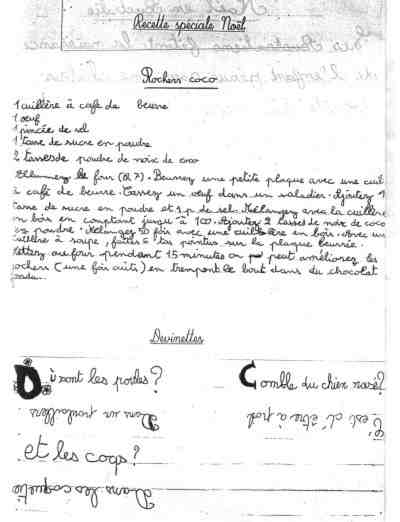 Recette spéciale Noël
Rochers coco
1 cuillère à café de beurre
1 oeuf
1 pincée de sel
1 tasse de sucre en poudre
2 tasses de poudre de noix de coco
Allumez le four (th 7). Beurrez une petite plaque avec une cuil
à café de beurre. Cassez un oeuf dans un saladier. Ajoutez 1
tasse de sucre en poudre et 1 p de sel. Mélangez avec la cuillère
en bois en comptant jusqu'à 100. Ajoutez 2 tasses de noix de coco
en poudre. Mélangez 50 fois avec une cuillère en bois. Avec un
cuillère à soupe, faites tas pointus sur la plaque beurrée.
Mettez au four pendant 15 minutes on peut améliorez les
rochers (une fois cuits) en trempant le bout dans du chocolat
fondu.
Devinettes
Où sont les poules?
Dans un poulailler
Comble du chien rasé?
C'est d'être à poil
et les coqs?
Dans les coquetiers